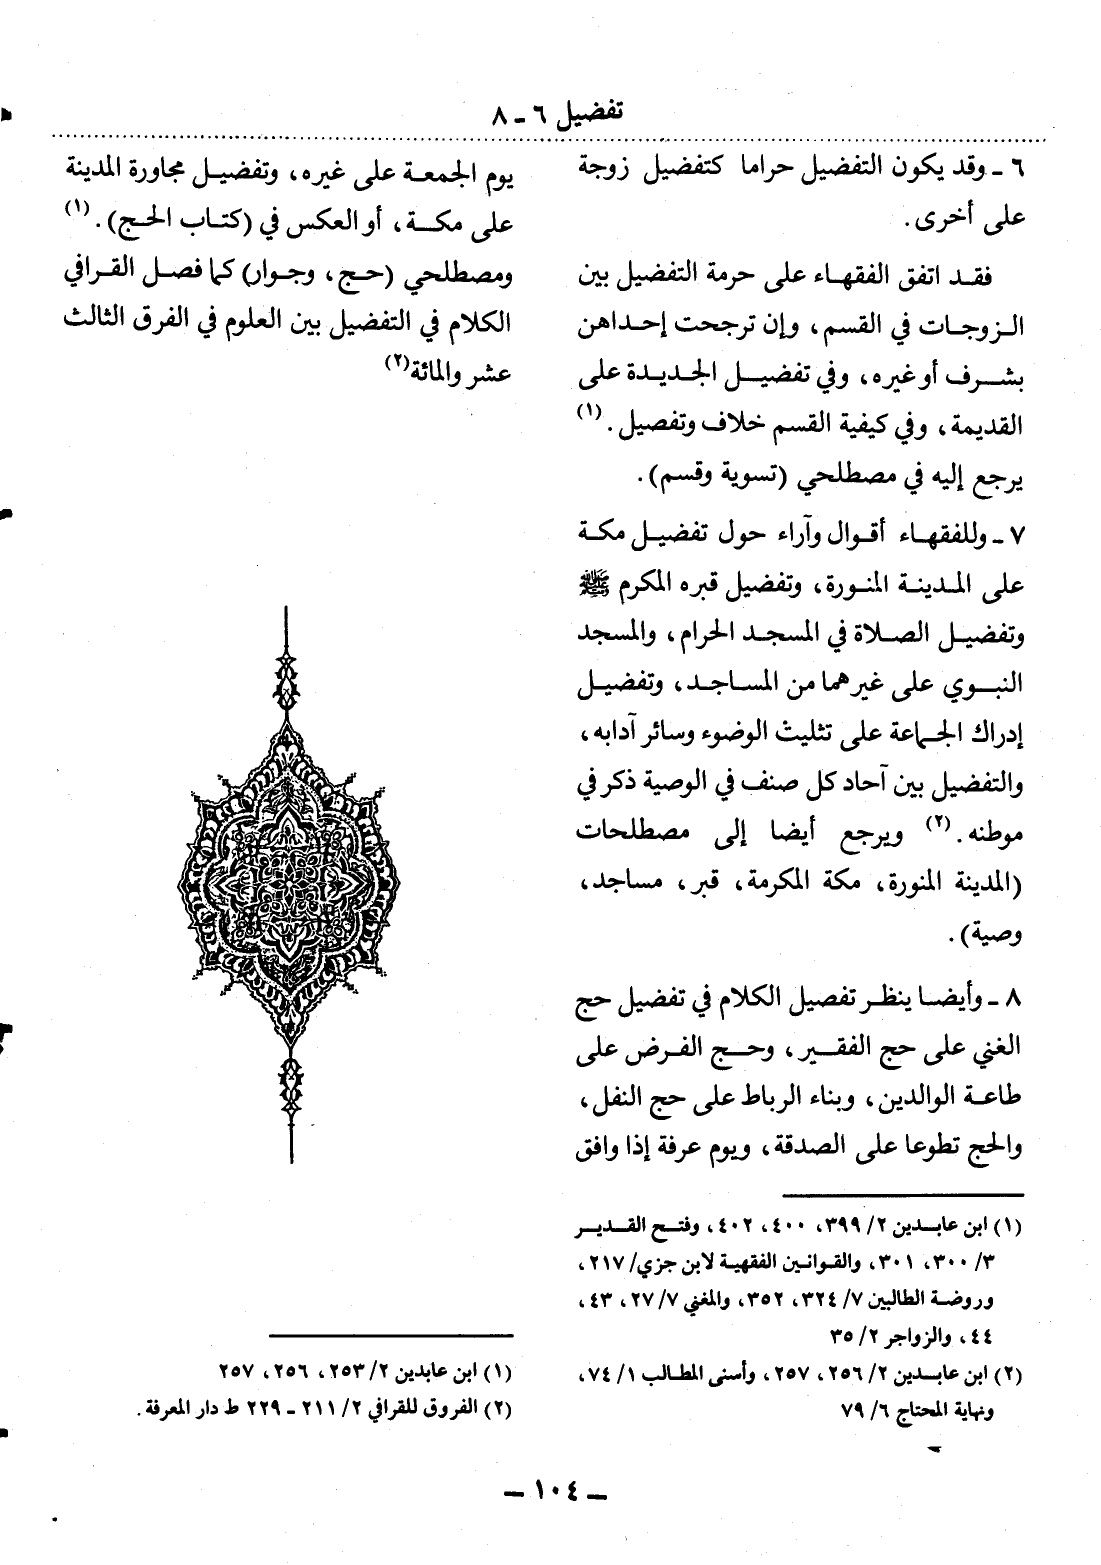 تفضيل ٦ - ٨
٦ - وقد يكون التفضيل حراما كتفضيل زوجة
على أخرى .
فقد اتفق الفقهاء على حرمة التفضيل بين
الزوجات في القسم ، وإن ترجحت إحداهن
بشرف أو غيره ، وفي تفضيل الجديدة على
القديمة ، وفي كيفية القسم خلاف وتفصيل . (١)
يرجع إليه في مصطلحي (تسوية وقسم) .
٧ - وللفقهاء أقوال وآراء حول تفضيل مكة
على المدينة المنورة ، وتفضيل قبره المكرم ﷺ
وتفضيل الصلاة في المسجد الحرام ، والمسجد
النبوي على غيرهما من المساجد ، وتفضيل
إدراك الجماعة على تثليث الوضوء وسائر آدابه ،
والتفضيل بين آحاد كل صنف في الوصية ذكر في
موطنه . (٢) ويرجع أيضا إلى مصطلحات
(المدينة المنورة ، مكة المكرمة ، قبر ، مساجد ،
وصية) .
٨ - وأيضا ينظر تفصيل الكلام في تفضيل حج
الغني على حج الفقير ، وحج الفرض على
طاعة الوالدين ، وبناء الرباط على حج النفل ،
والحج تطوعا على الصدقة ، ويوم عرفة إذا وافق
(١) ابن عابدين ٢/ ٣٩٩ ، ٤٠٠ ، ٤٠٢ ، وفتح القدير
٣/ ٣٠٠ ، ٣٠١ ، والقوانين الفقهية لابن جزي/ ٢١٧ ،
وروضة الطالبين ٧/ ٣٢٤ ، ٣٥٢ ، والمغني ٧/ ٢٧ ، ٤٣ ،
٤٤ ، والزواجر ٢/ ٣٥
(٢) ابن عابدين ٢/ ٢٥٦ ، ٢٥٧ ، وأسنى المطالب ١/ ٧٤ ،
ونهاية المحتاج ٦/ ٧٩
يوم الجمعة على غيره ، وتفضيل مجاورة المدينة
على مكة ، أو العكس في (كتاب الحج) . (١)
ومصطلحي (حج ، وجوار) كما فصل القرافي
الكلام في التفضيل بين العلوم في الفرق الثالث
عشر والمائة (٢)
(١) ابن عابدين ٢/ ٢٥٣ ، ٢٥٦ ، ٢٥٧
(٢) الفروق للقرافي ٢/ ٢١١ - ٢٢٩ ط دار المعرفة .
- ١٠٤ -